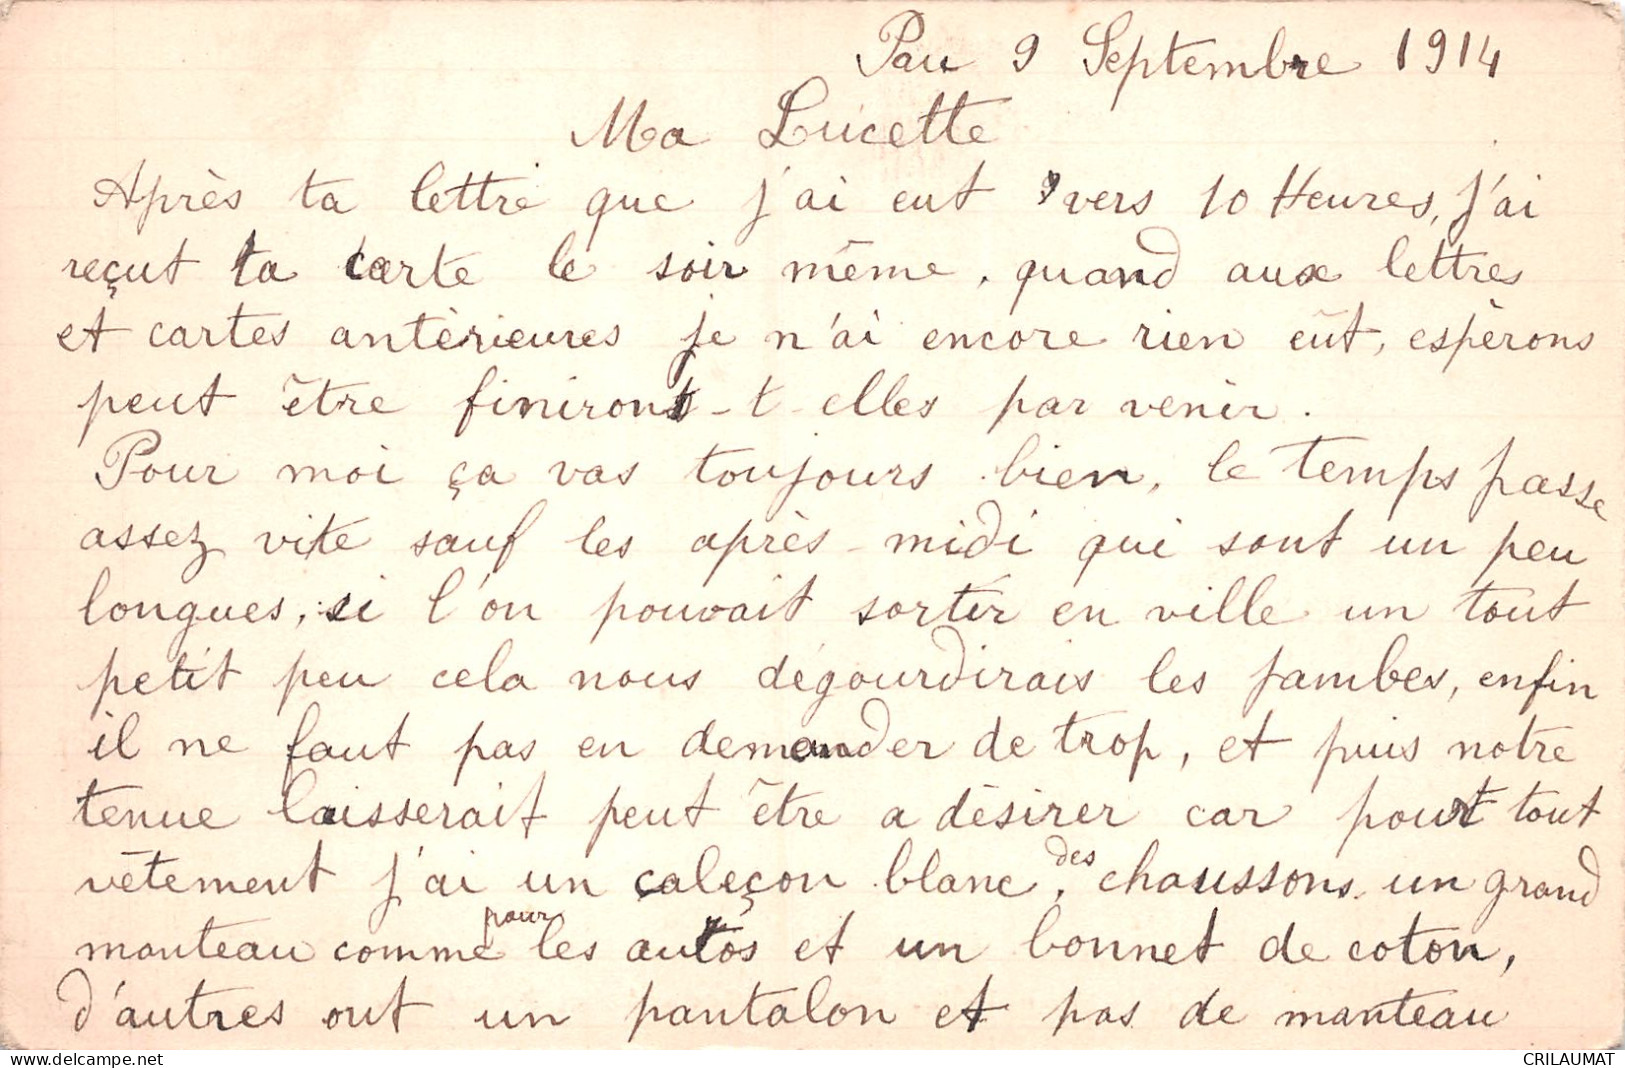 Pau 9 Septembre 1914
Ma Lucette
Après ta lettre que j'ai eut vers 10 Heures, j'ai
reçut ta carte le soir même, quand aux lettres
et cartes antérieures je n'ai encore rien eût, espérons
peut être finiront-t-elles par venir.
Pour moi ça vas toujours bien, le temps passe
assez vite sauf les après-midi qui sont un peu
longues, si l'on pouvait sortir en ville un tout
petit peu cela nous dégourdirais les jambes, enfin
il ne faut pas en demander de trop, et puis notre
tenue laisserait peut être a désirer car pour tout
vêtement j'ai un caleçon blanc, des chaussons un grand
manteau comme pour les autos et un bonnet de coton,
d'autres ont un pantalon et pas de manteau
delcampe.net
CRILAUMAT